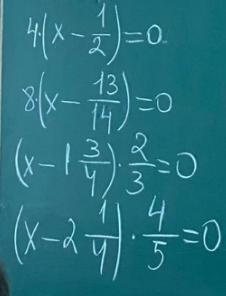 4·(x - 1/2) = 0.
8·(x - 13/14) = 0
(x - 1 3/4) · 2/3 = 0
(x - 2 1/4) · 4/5 = 0